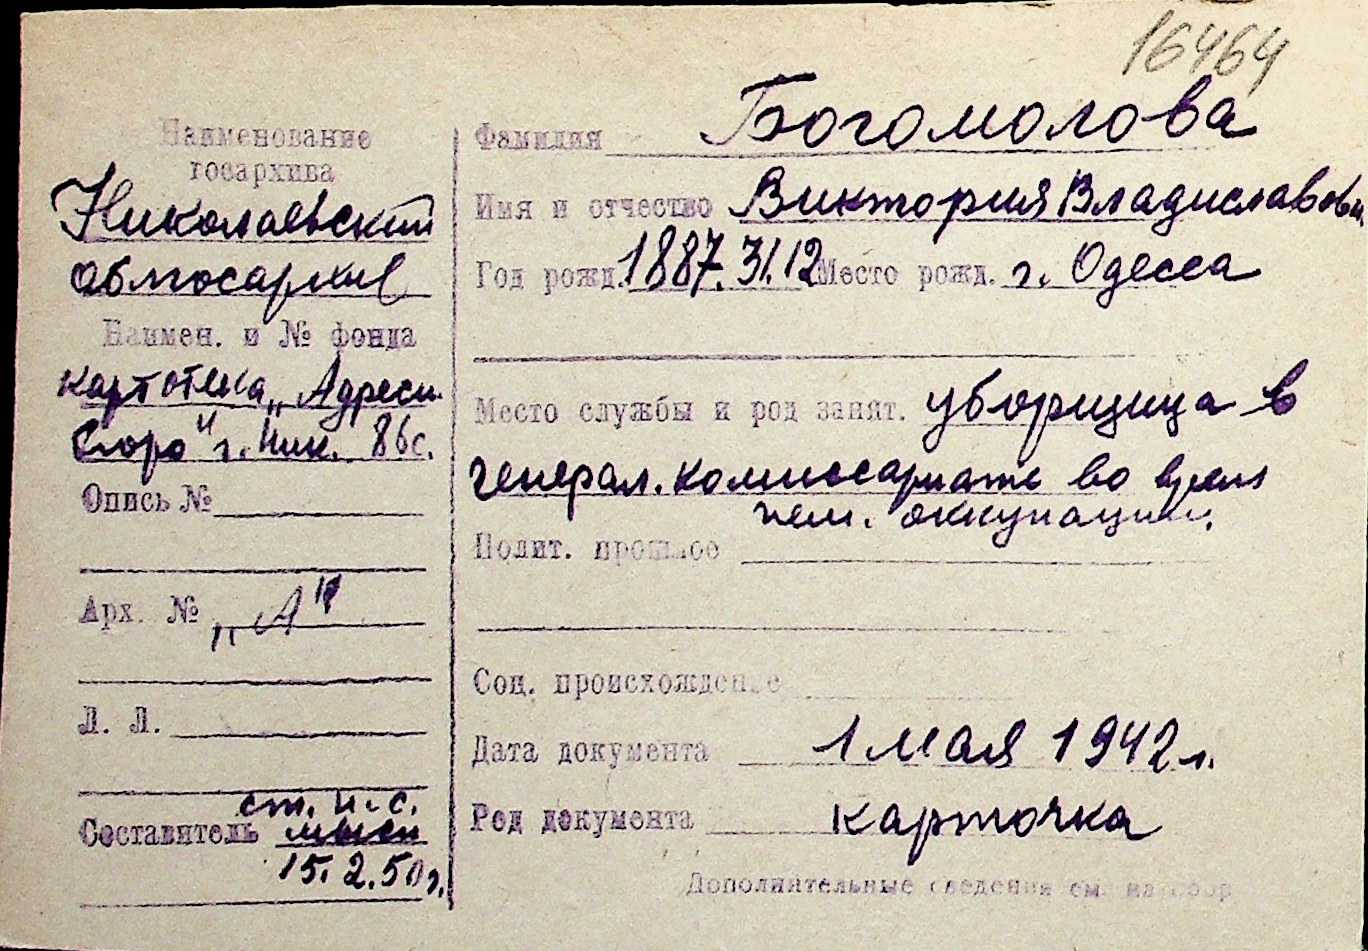 16464
Наименование
госархива
Николаевский
облгосархив
Наимен. и № фонда
картотека „Адресн.
бюро" г. Ник. 86с.
Опись №
Арх. № „А"
Л. Л.
ст. н.-с.
Составитель
15.2.50г.
Фамилия Богомолова
Имя и отчество Виктория Владиславовн
Год рожд. 1887. 31.12 Место рожд. г. Одесса
Место службы и род занят. уборщица в
генерал. комиссариате во время
нем. оккупации.
Полит. прошлое
Соц. происхождение
Дата документа 1 мая 1942 г.
Род документа карточка
Дополнительные сведения см. на обор